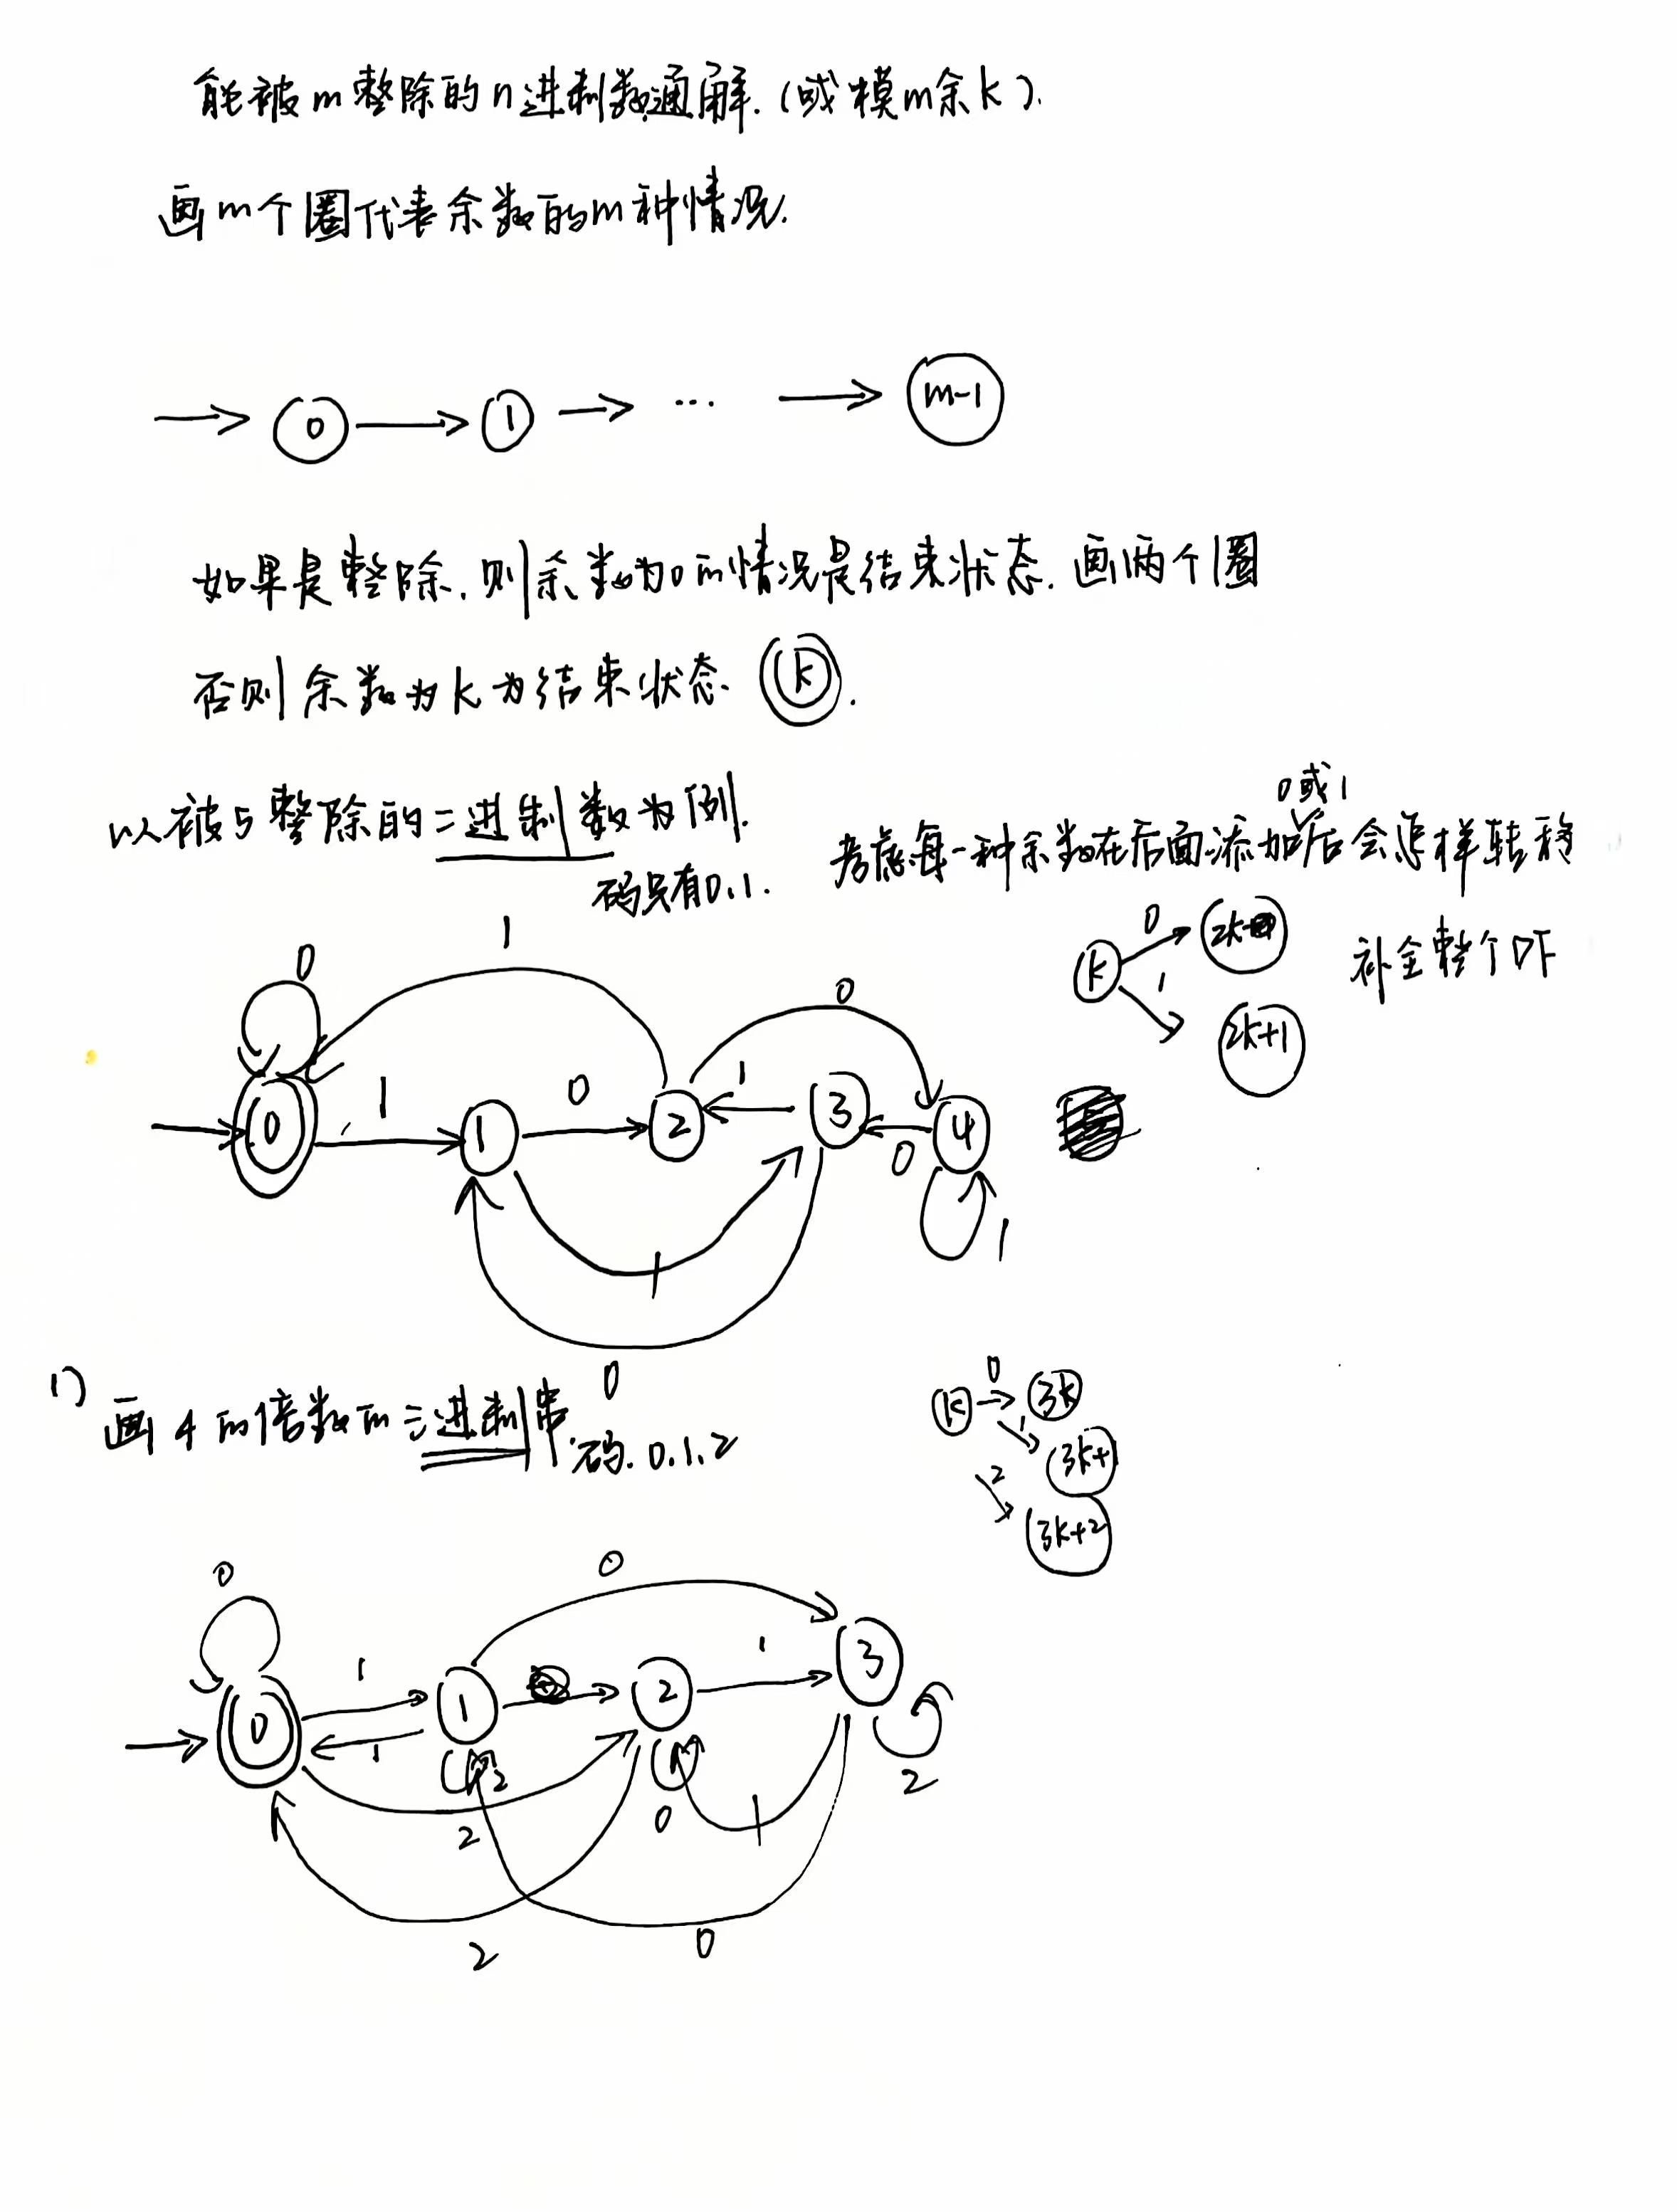 能被m整除的n进制数通解.(或模m余k).
画m个圈代表余数的m种情况.
0 1 ... m-1
如果是整除.则余数为0的情况是结束状态.画两个圈
否则余数为k为结束状态 k.
以被5整除的二进制数为例.
码只有0.1.
0或1
考虑每一种余数在后面添加后会怎样转移
补全整个DF
k 0 2k
1 2k+1
0 1 0
1 0 1
0 1 2 3 4
0 1
1
0
1)
画4的倍数的三进制串.
码.0.1.2
k 0 3k
1 3k+1
2 3k+2
0 0
1 1
0 1 2 3
1 2
2 0 1 2
2 0